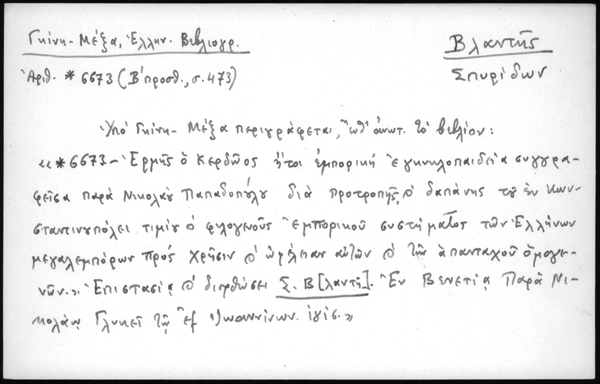 Γκίνη-Μέξα, Ἑλλην. Βιβλιογρ.
Βλαντῆς
Ἀριθ. *6673 (Β' προσθ., σ. 473)
Σπυρίδων
Ὑπό Γκίνη-Μέξα περιγράφεται, τὸ βιβλίον:
«*6673- Ἑρμῆς ὁ Κερδῶος ἤτοι ἐμπορική Ἐγκυκλοπαιδεία συγγρα-
φεῖσα παρά Νικολάου Παπαδοπούλου διά προτροπῆς, δαπάνης τοῦ ἐν Κων-
σταντινουπόλει τιμίου φιλογενοῦς Ἐμπορικοῦ συστήματος τῶν Ἑλλήνων
μεγαλεμπόρων πρός χρῆσιν ὠφέλειαν αὐτῶν τῶν ἁπανταχοῦ ὁμογε-
νῶν.» Ἐπιστασίᾳ διορθώσει Σ. Β[λαντῆ]. Ἐν Βενετίᾳ Παρά Νι-
κολάῳ Γλυκεῖ τῷ ἐξ Ἰωαννίνων.